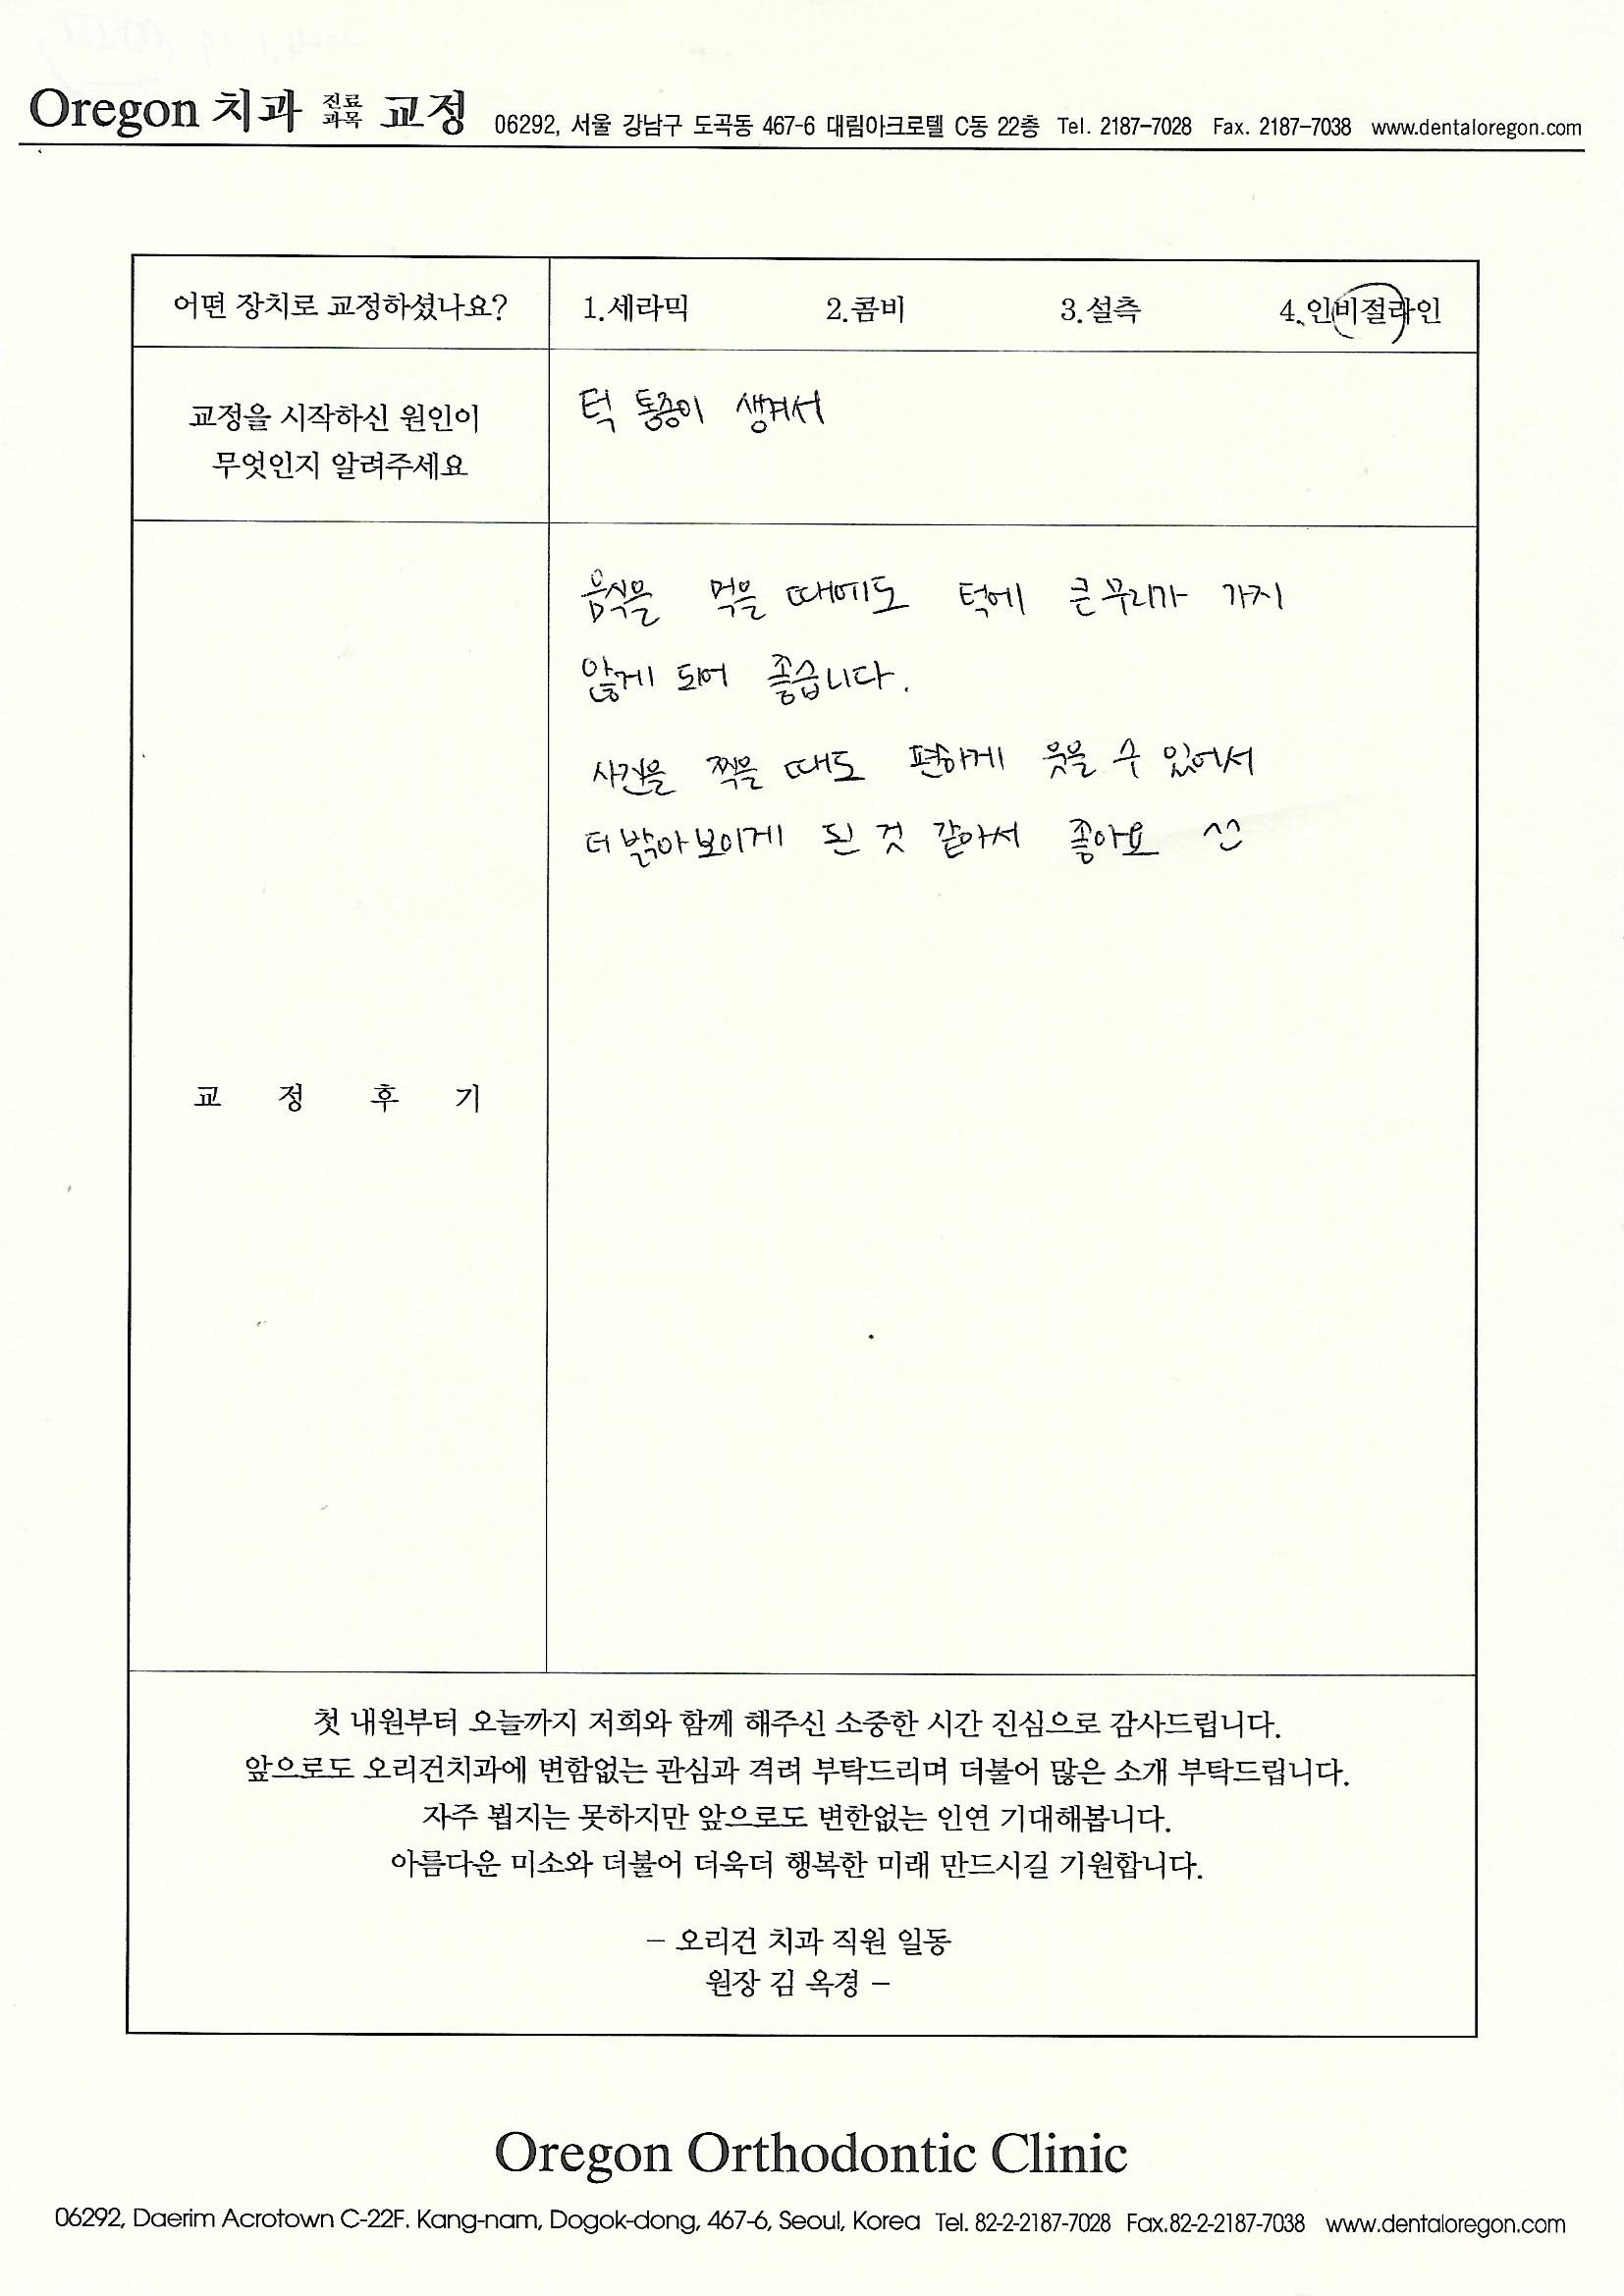 Oregon 치과 진료과목 교정 06292, 서울 강남구 도곡동 467-6 대림아크로텔 C동 22층 Tel. 2187-7028 Fax. 2187-7038 www.dentaloregon.com
어떤 장치로 교정하셨나요? 1.세라믹 2.콤비 3.설측 4.인비절라인
교정을 시작하신 원인이
무엇인지 알려주세요
턱 통증이 생겨서
음식을 먹을 때에도 턱에 큰 무리가 가지
않게 되어 좋습니다.
사진을 찍을 때도 편하게 웃을 수 있어서
더 밝아보이게 된 것 같아서 좋아요 ^^
교 정 후 기
첫 내원부터 오늘까지 저희와 함께 해주신 소중한 시간 진심으로 감사드립니다.
앞으로도 오리건치과에 변함없는 관심과 격려 부탁드리며 더불어 많은 소개 부탁드립니다.
자주 뵙지는 못하지만 앞으로도 변한없는 인연 기대해봅니다.
아름다운 미소와 더불어 더욱더 행복한 미래 만드시길 기원합니다.
- 오리건 치과 직원 일동
원장 김 옥경 -
Oregon Orthodontic Clinic
06292, Daerim Acrotown C-22F. Kang-nam, Dogok-dong, 467-6, Seoul, Korea Tel. 82-2-2187-7028 Fax.82-2-2187-7038 www.dentaloregon.com